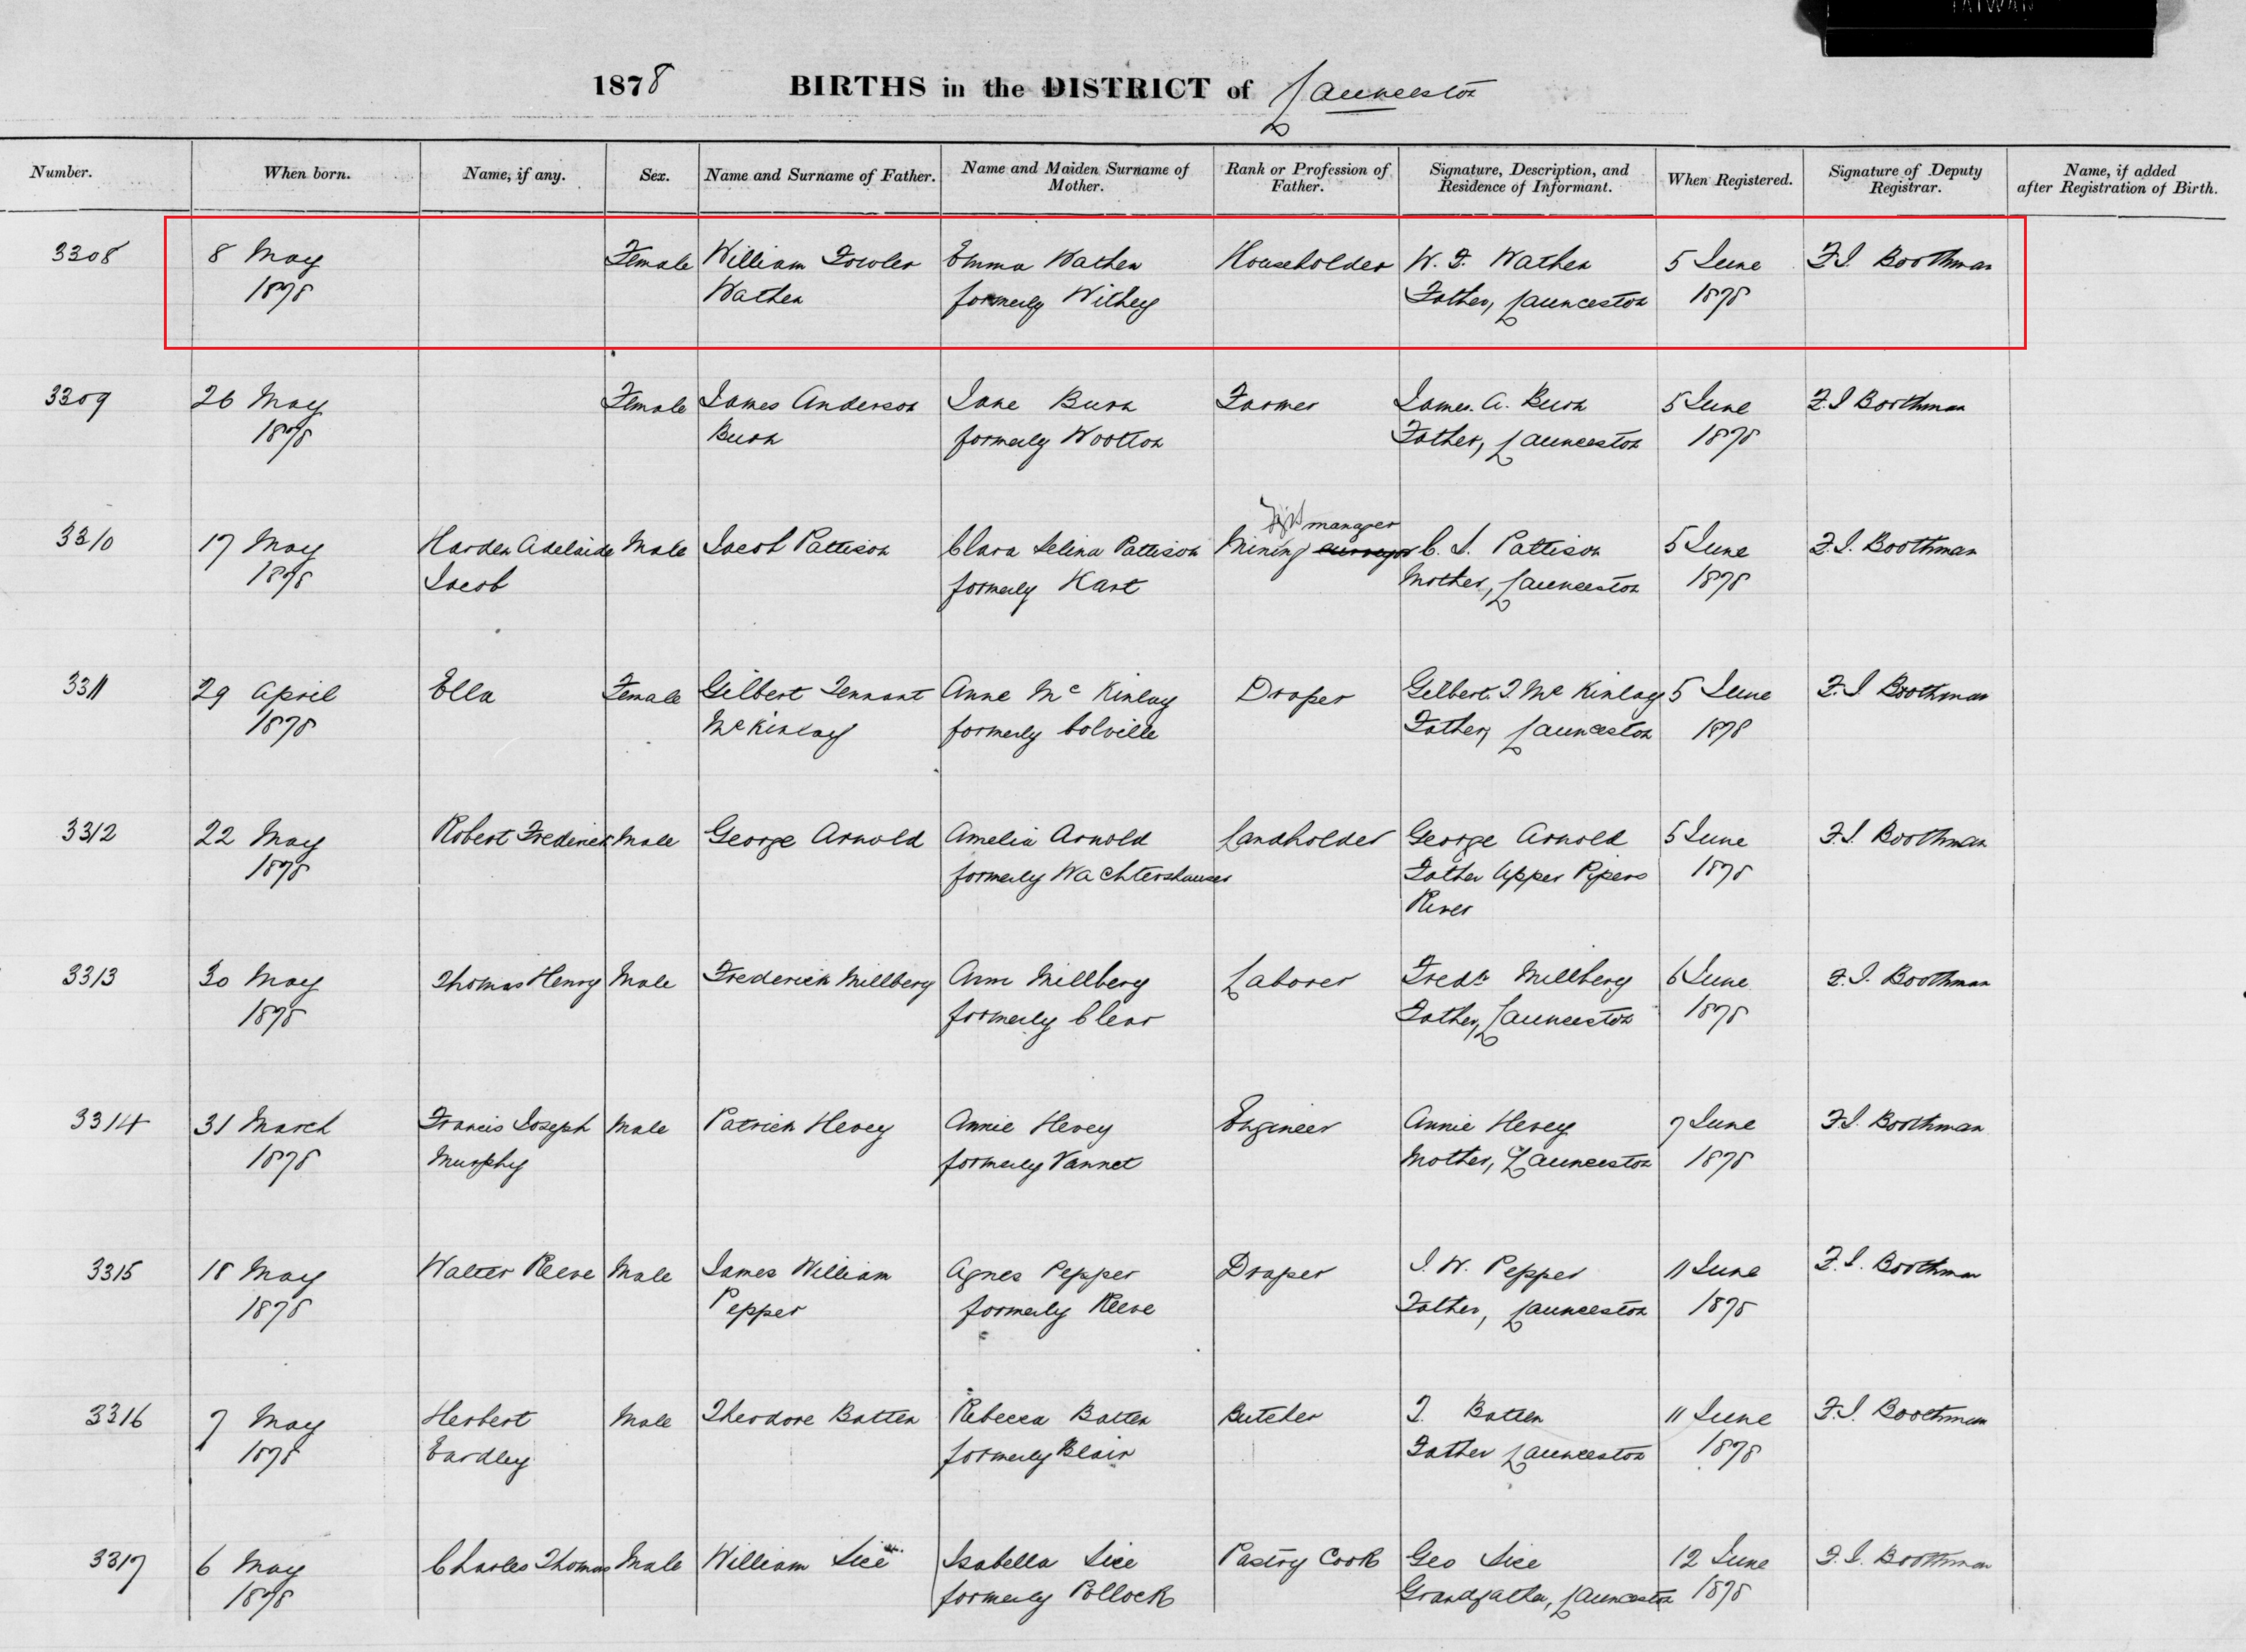 TAIWAN
1878 BIRTHS in the DISTRICT of Launceston
Number. When born. Name, if any. Sex. Name and Surname of Father. Name and Maiden Surname of Mother. Rank or Profession of Father. Signature, Description, and Residence of Informant. When Registered. Signature of Deputy Registrar. Name, if added after Registration of Birth.
3308 8 May Female William Fowler Emma Wathen Householder W. F. Wathen 5 June F.J. Boothman
1878 Wathen formerly Withey Father, Launceston 1878
3309 26 May Female James Anderson Jane Burn Farmer James. A. Burn 5 June F.J Boothman
1878 Burn formerly Wootton Father, Launceston 1878
manager
3310 17 May Harden Adelaide Male Jacob Pattison Clara Selina Pattison Mining C. S. Pattison 5 June F.J. Boothman
1878 Jacob formerly Hart Mother, Launceston 1878
3311 29 April Ella Female Gilbert Tennant Anne Mc Kinlay Draper Gilbert. T. Mc Kinlay 5 June F.J Boothman
1878 McKinlay formerly Colville Father, Launceston 1878
3312 22 May Robert Frederick Male George Arnold Amelia Arnold Landholder George Arnold 5 June F.J. Boothman
1878 formerly Wachtershauser Father Upper Pipers 1878
River
3313 30 May Thomas Henry Male Frederick Millberg Ann Millberg Laborer Fredk Millberg 6 June F.J. Boothman
1878 formerly Clear Father, Launceston 1878
3314 31 March Francis Joseph Male Patrick Hevey Annie Hevey Engineer Annie Hevey 7 June F.J. Boothman
1878 Murphy formerly Vannet Mother, Launceston 1878
3315 18 May Walter Reeve Male James William Agnes Pepper Draper J. W. Pepper 11 June F.J. Boothman
1878 Pepper formerly Reeve Father, Launceston 1878
3316 7 May Herbert Male Theodore Batten Rebecca Batten Butcher T. Batten 11 June F.J. Boothman
1878 Eardley formerly Blair Father Launceston 1878
3317 6 May Charles Thomas Male William Sice Isabella Sice Pastry Cook Geo Sice 12 June F.J. Boothman
1878 formerly Pollock Grandfather, Launceston 1878